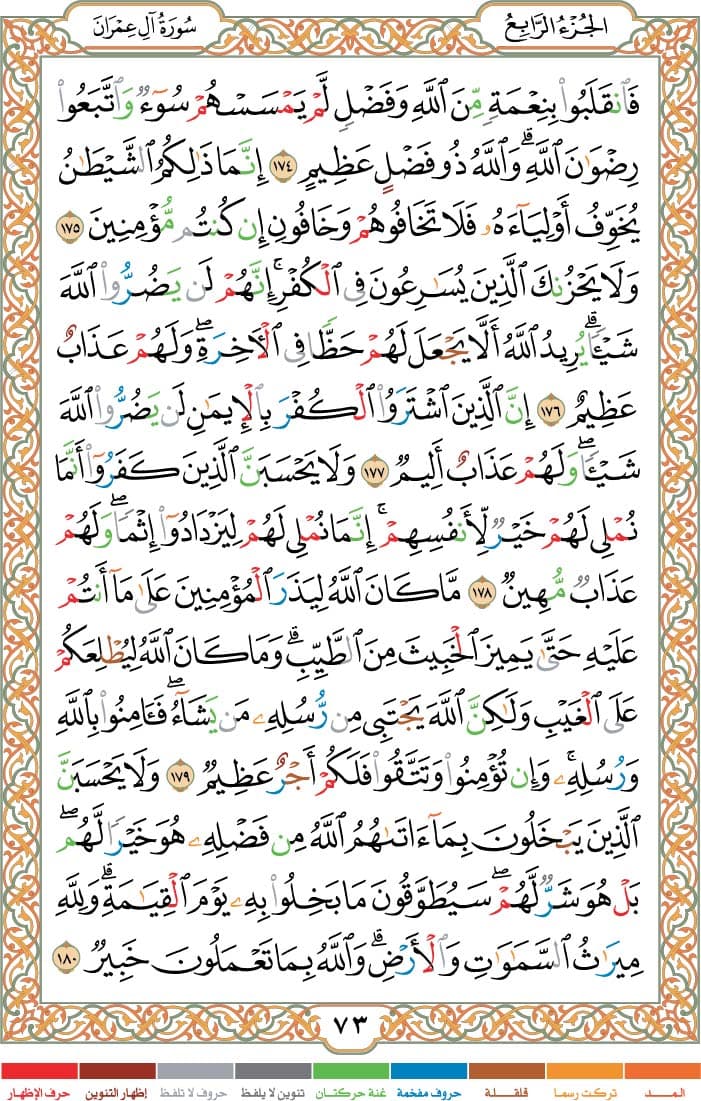 الجُزْءُ الرَّابِعُ
سُورَةُ آلِ عِمْرَانَ
فَٱنقَلَبُوا۟ بِنِعْمَةٍ مِّنَ ٱللَّهِ وَفَضْلٍ لَّمْ يَمْسَسْهُمْ سُوٓءٌ وَٱتَّبَعُوا۟
رِضْوَٰنَ ٱللَّهِ ۗ وَٱللَّهُ ذُو فَضْلٍ عَظِيمٍ ١٧٤ إِنَّمَا ذَٰلِكُمُ ٱلشَّيْطَٰنُ
يُخَوِّفُ أَوْلِيَآءَهُۥ فَلَا تَخَافُوهُمْ وَخَافُونِ إِن كُنتُم مُّؤْمِنِينَ ١٧٥
وَلَا يَحْزُنكَ ٱلَّذِينَ يُسَٰرِعُونَ فِى ٱلْكُفْرِ ۚ إِنَّهُمْ لَن يَضُرُّوا۟ ٱللَّهَ
شَيْـًٔا ۗ يُرِيدُ ٱللَّهُ أَلَّا يَجْعَلَ لَهُمْ حَظًّا فِى ٱلْـَٔاخِرَةِ ۖ وَلَهُمْ عَذَابٌ
عَظِيمٌ ١٧٦ إِنَّ ٱلَّذِينَ ٱشْتَرَوُا۟ ٱلْكُفْرَ بِٱلْإِيمَٰنِ لَن يَضُرُّوا۟ ٱللَّهَ
شَيْـًٔا ۖ وَلَهُمْ عَذَابٌ أَلِيمٌ ١٧٧ وَلَا يَحْسَبَنَّ ٱلَّذِينَ كَفَرُوٓا۟ أَنَّمَا
نُمْلِى لَهُمْ خَيْرٌ لِّأَنفُسِهِمْ ۚ إِنَّمَا نُمْلِى لَهُمْ لِيَزْدَادُوٓا۟ إِثْمًا ۖ وَلَهُمْ
عَذَابٌ مُّهِينٌ ١٧٨ مَّا كَانَ ٱللَّهُ لِيَذَرَ ٱلْمُؤْمِنِينَ عَلَىٰ مَآ أَنتُمْ
عَلَيْهِ حَتَّىٰ يَمِيزَ ٱلْخَبِيثَ مِنَ ٱلطَّيِّبِ ۗ وَمَا كَانَ ٱللَّهُ لِيُطْلِعَكُمْ
عَلَى ٱلْغَيْبِ وَلَٰكِنَّ ٱللَّهَ يَجْتَبِى مِن رُّسُلِهِۦ مَن يَشَآءُ ۖ فَـَٔامِنُوا۟ بِٱللَّهِ
وَرُسُلِهِۦ ۚ وَإِن تُؤْمِنُوا۟ وَتَتَّقُوا۟ فَلَكُمْ أَجْرٌ عَظِيمٌ ١٧٩ وَلَا يَحْسَبَنَّ
ٱلَّذِينَ يَبْخَلُونَ بِمَآ ءَاتَىٰهُمُ ٱللَّهُ مِن فَضْلِهِۦ هُوَ خَيْرًا لَّهُم ۖ
بَلْ هُوَ شَرٌّ لَّهُمْ ۖ سَيُطَوَّقُونَ مَا بَخِلُوا۟ بِهِۦ يَوْمَ ٱلْقِيَٰمَةِ ۗ وَلِلَّهِ
مِيرَٰثُ ٱلسَّمَٰوَٰتِ وَٱلْأَرْضِ ۗ وَٱللَّهُ بِمَا تَعْمَلُونَ خَبِيرٌ ١٨٠
٧٣
المــــد تركت رسما قلقــلة حروف مفخمة غنة حركتـان تنوين لا يلفظ حروف لا تلفظ إظهار التنوين حرف الإظهار